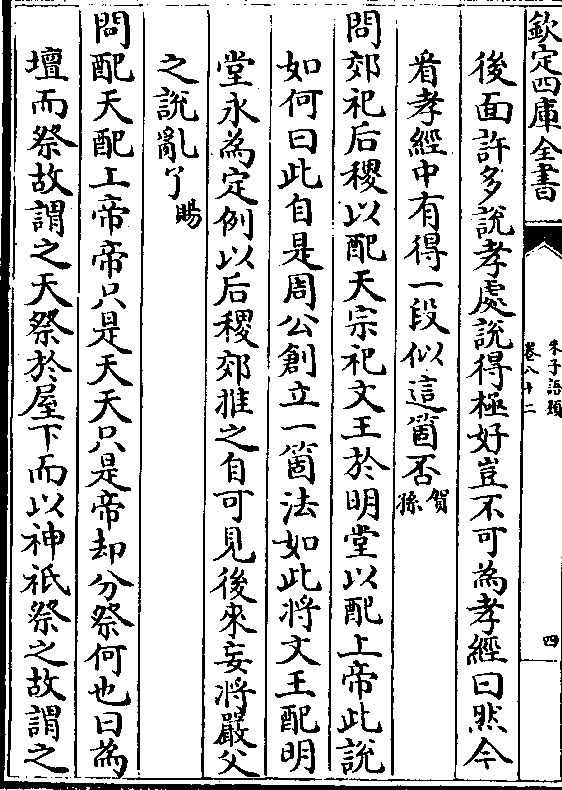 欽定四庫全書
朱子語類
卷八十二
四
後面許多說孝處說得極好豈不可為孝經曰然今
看孝經中有得一段似這箇否賀孫
問郊祀后稷以配天宗祀文王於明堂以配上帝此說
如何曰此自是周公創立一箇法如此將文王配明
堂永為定例以后稷郊推之自可見後來妄將嚴父
之說亂了賜
問配天配上帝帝只是天天只是帝却分祭何也曰為
壇而祭故謂之天祭於屋下而以神祇祭之故謂之